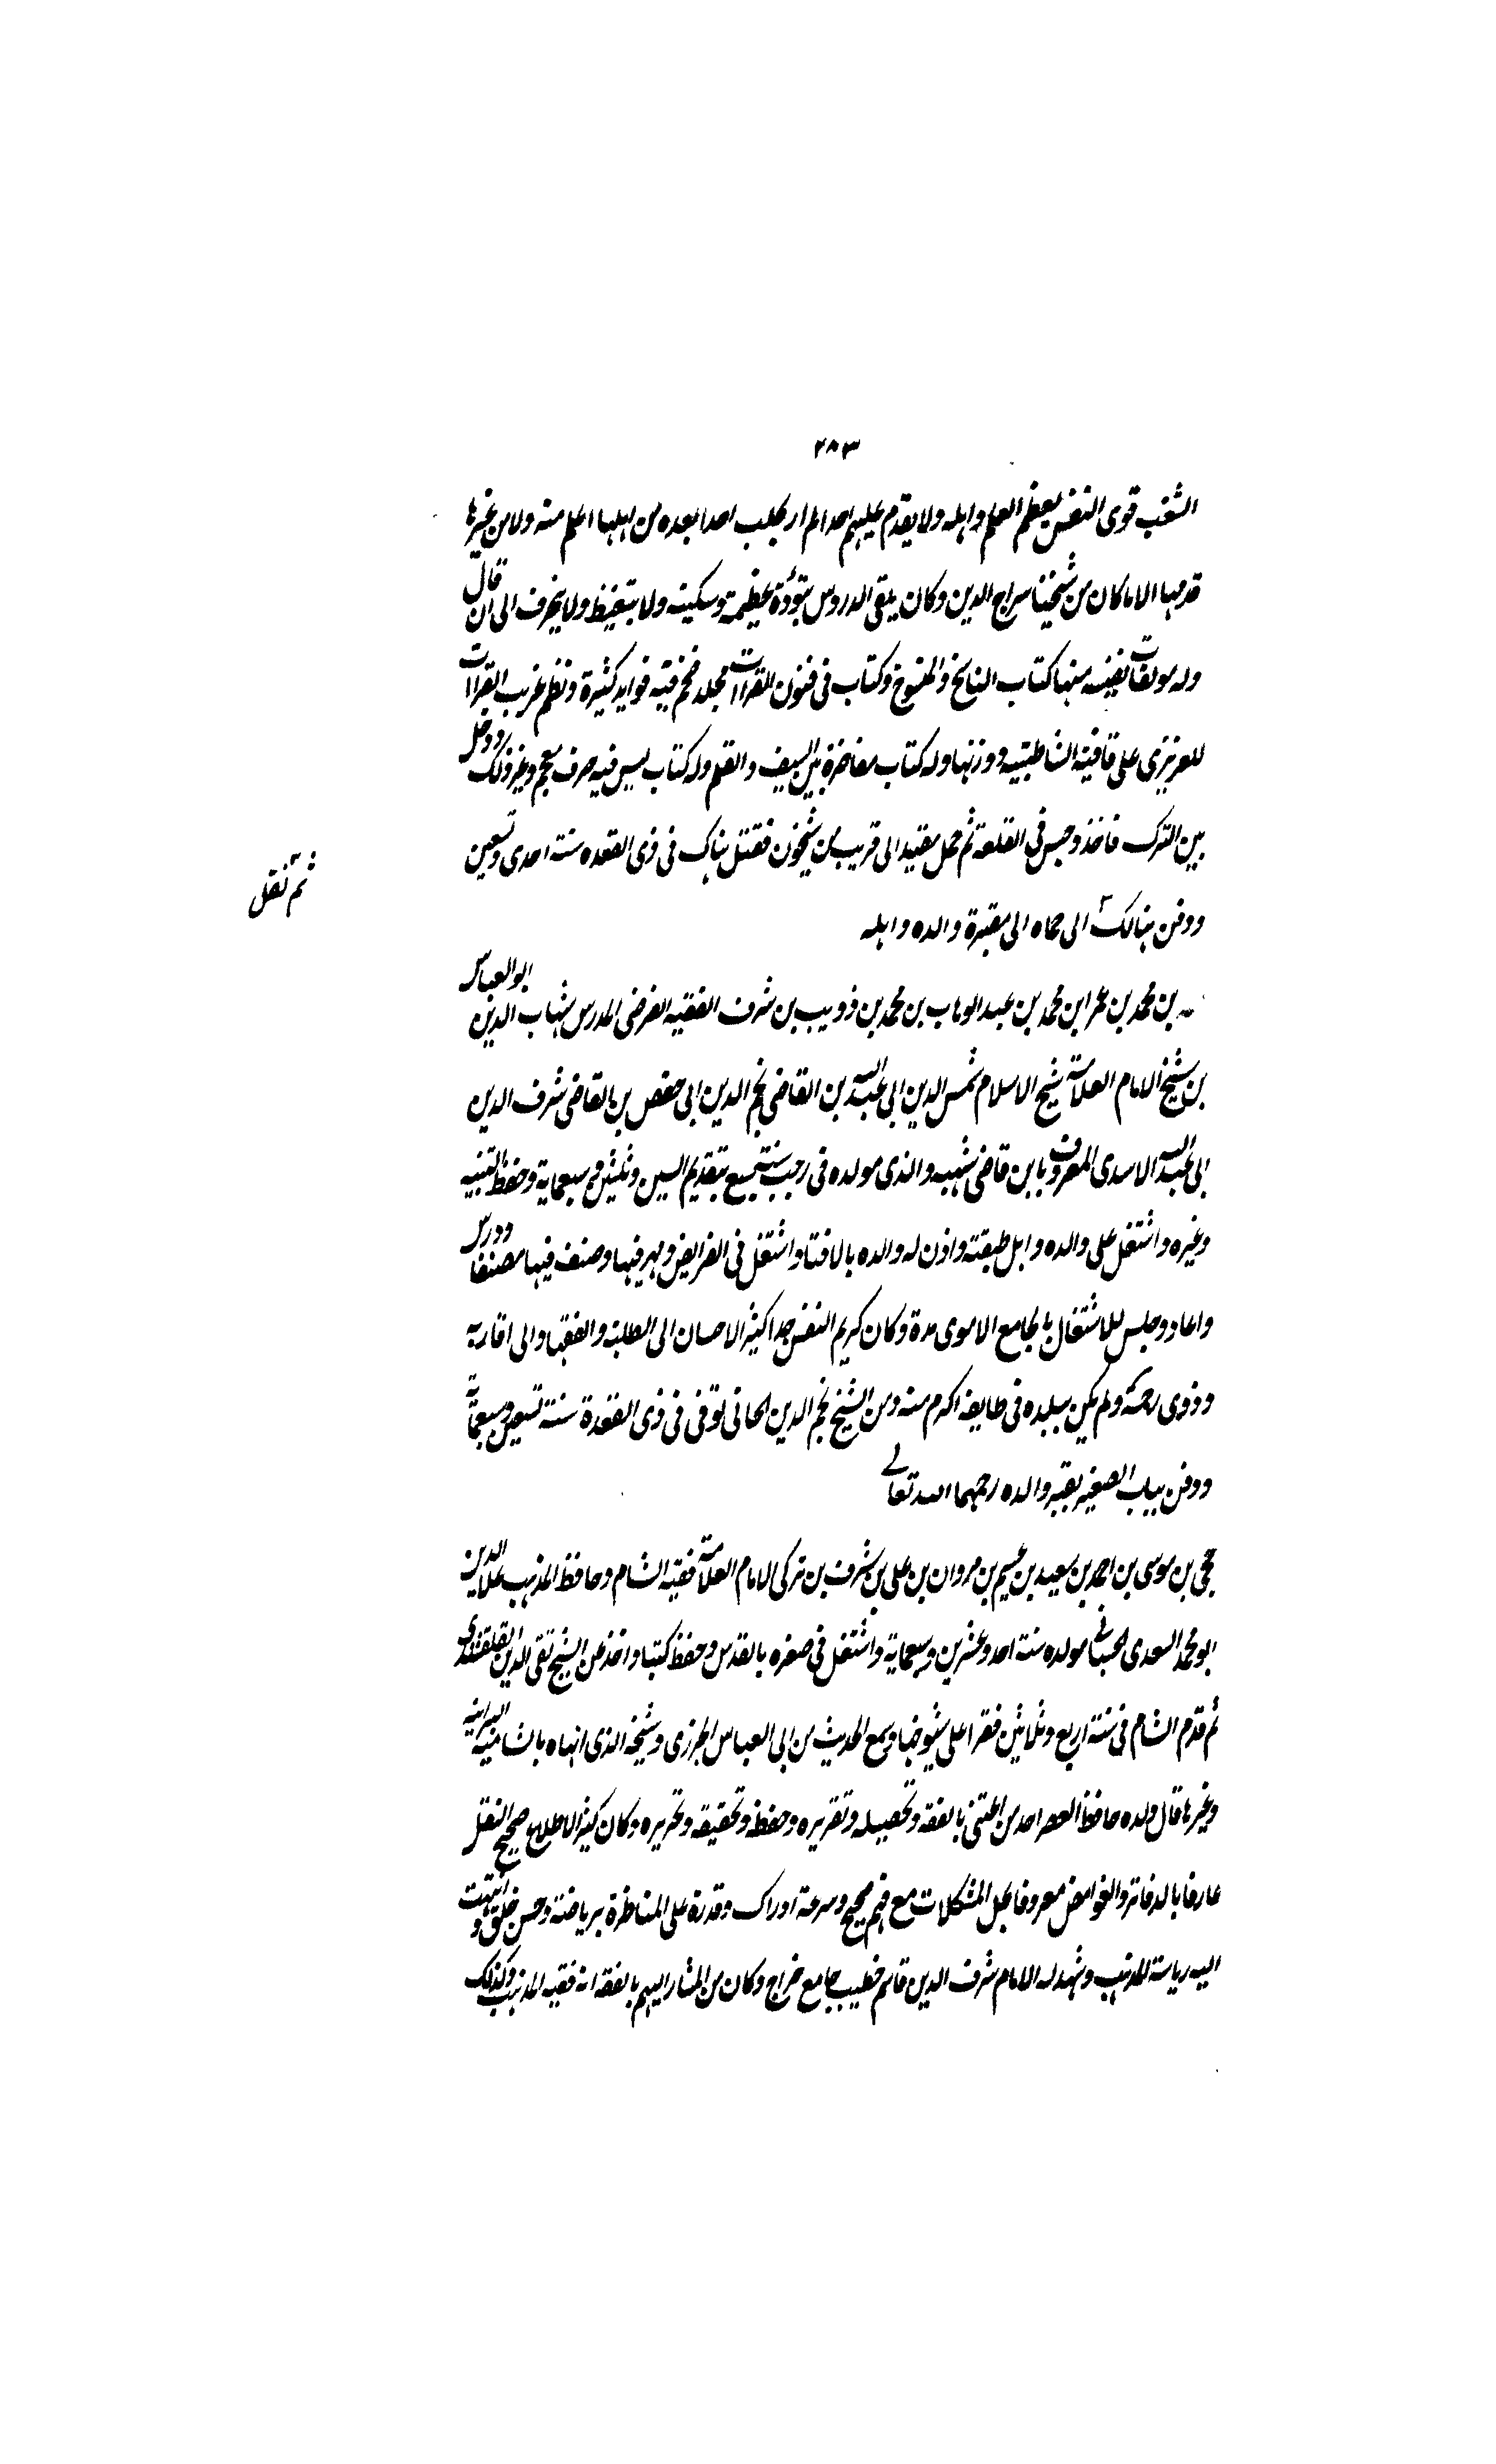 ٢٨٣
الشغب قوى النفس يعظم العلم واهله ولا يقدم عليهم احدا لم ار بحلب احدا بعده من اهلها اعلم منه ولا من غيرها
قدمها الا ماكان من شيخنا سراج الدين وكان يلقى الدروس بتؤدة عظيمة وسكينه ولا يتغيظ ولا ينحرف الى ان قال
وله مولفات نفيسه منها كتاب الناسخ والمنسوخ وكتاب فى فنون القراات مجلد ضخم فيه فوايد كثيرة ونظم غريب القراات
للعزيزى على قافية الشاطبيه ووزنها وله كتاب مفاخرة بين السيف والقلم وله كتاب ليس فيه حرف معجم وغير ذلك ودخل
بين الترك فاخذ وحبس فى القلعة ثم حمل مقيدا الى قريب من شيخون فقتل هناك فى ذى القعده سنة احدى وتسعين
ودفن هنالك الى حماه الى مقبرة والده واهله
ثم نقل
بن محمد بن عمر ابن محمد بن عبد الوهاب بن محمد بن ذويب بن شرف الفقيه الفرضى المدرس شهاب الدين ابو العباس
بن شيخ الامام العلامة شيخ الاسلام شمس الدين ابى عبد الله بن القاضى نجم الدين ابى حفص بن القاضى شرف الدين
ابى عبد الله الاسدى المعروف بابن قاضى شهبه والذى مولده فى رجب سنة سبع بتقديم السين وثلثين وسبعماية وحفظ التنبيه
وغيره واشتغل على والده واهل طبقته واذن له والده بالافتا واشتغل فى الفرايض ومهر فيها وصنف فيها مصنفا ودرس
واعاد وجلس للاشتغال بالجامع الاموى مدة وكان كريم النفس جدا كثير الاحسان الى الطلبة والفقها والى اقاربه
وذوى رحمه ولم يكن ببلده فى طايفة اكرم منه ومن الشيخ نجم الدين الحانى توفى فى ذى القعدة سنة تسعين وسبعماية
ودفن بباب الصغير بقبر والده رحمهما الله تعالى
حجى بن موسى بن احمد بن سعيد بن غشيم بن مروان بن على بن شرف بن تركى الامام العلامة فقيه الشام وحافظ المذهب علاالدين
ابو محمد السعدى الحسبانى مولده سنة احد وعشرين وسبعماية واشتغل فى صغره بالقدس وحفظ كتبا واخذ عن الشيخ تقى الدين القلقشندى
ثم قدم الشام فى سنة اربع وثلاثين فقرا على شيوخها وسمع الحديث من ابى العباس الجزرى وشيخه الذى انهاه بالشامية البرانيه
وغيرها قال ولده حافظ العصر احد من اعتنى بالفقه وتحصيله وتقريره وحفظه وتحقيقه وتحريره وكان كثير الاطلاع صحيح النقل
عارفا بالدفاتر والغوامض معروفا بحل المشكلات مع فهم صحيح وسرعة ادراك وقدرة على المناظرة برياضة وحسن خلق وانتهت
اليه رياسة المذهب وشهد له الامام شرف الدين قاسم خطيب جامع جراح وكان من المشار اليهم بالفقه انه فقيه المذهب وكذلك